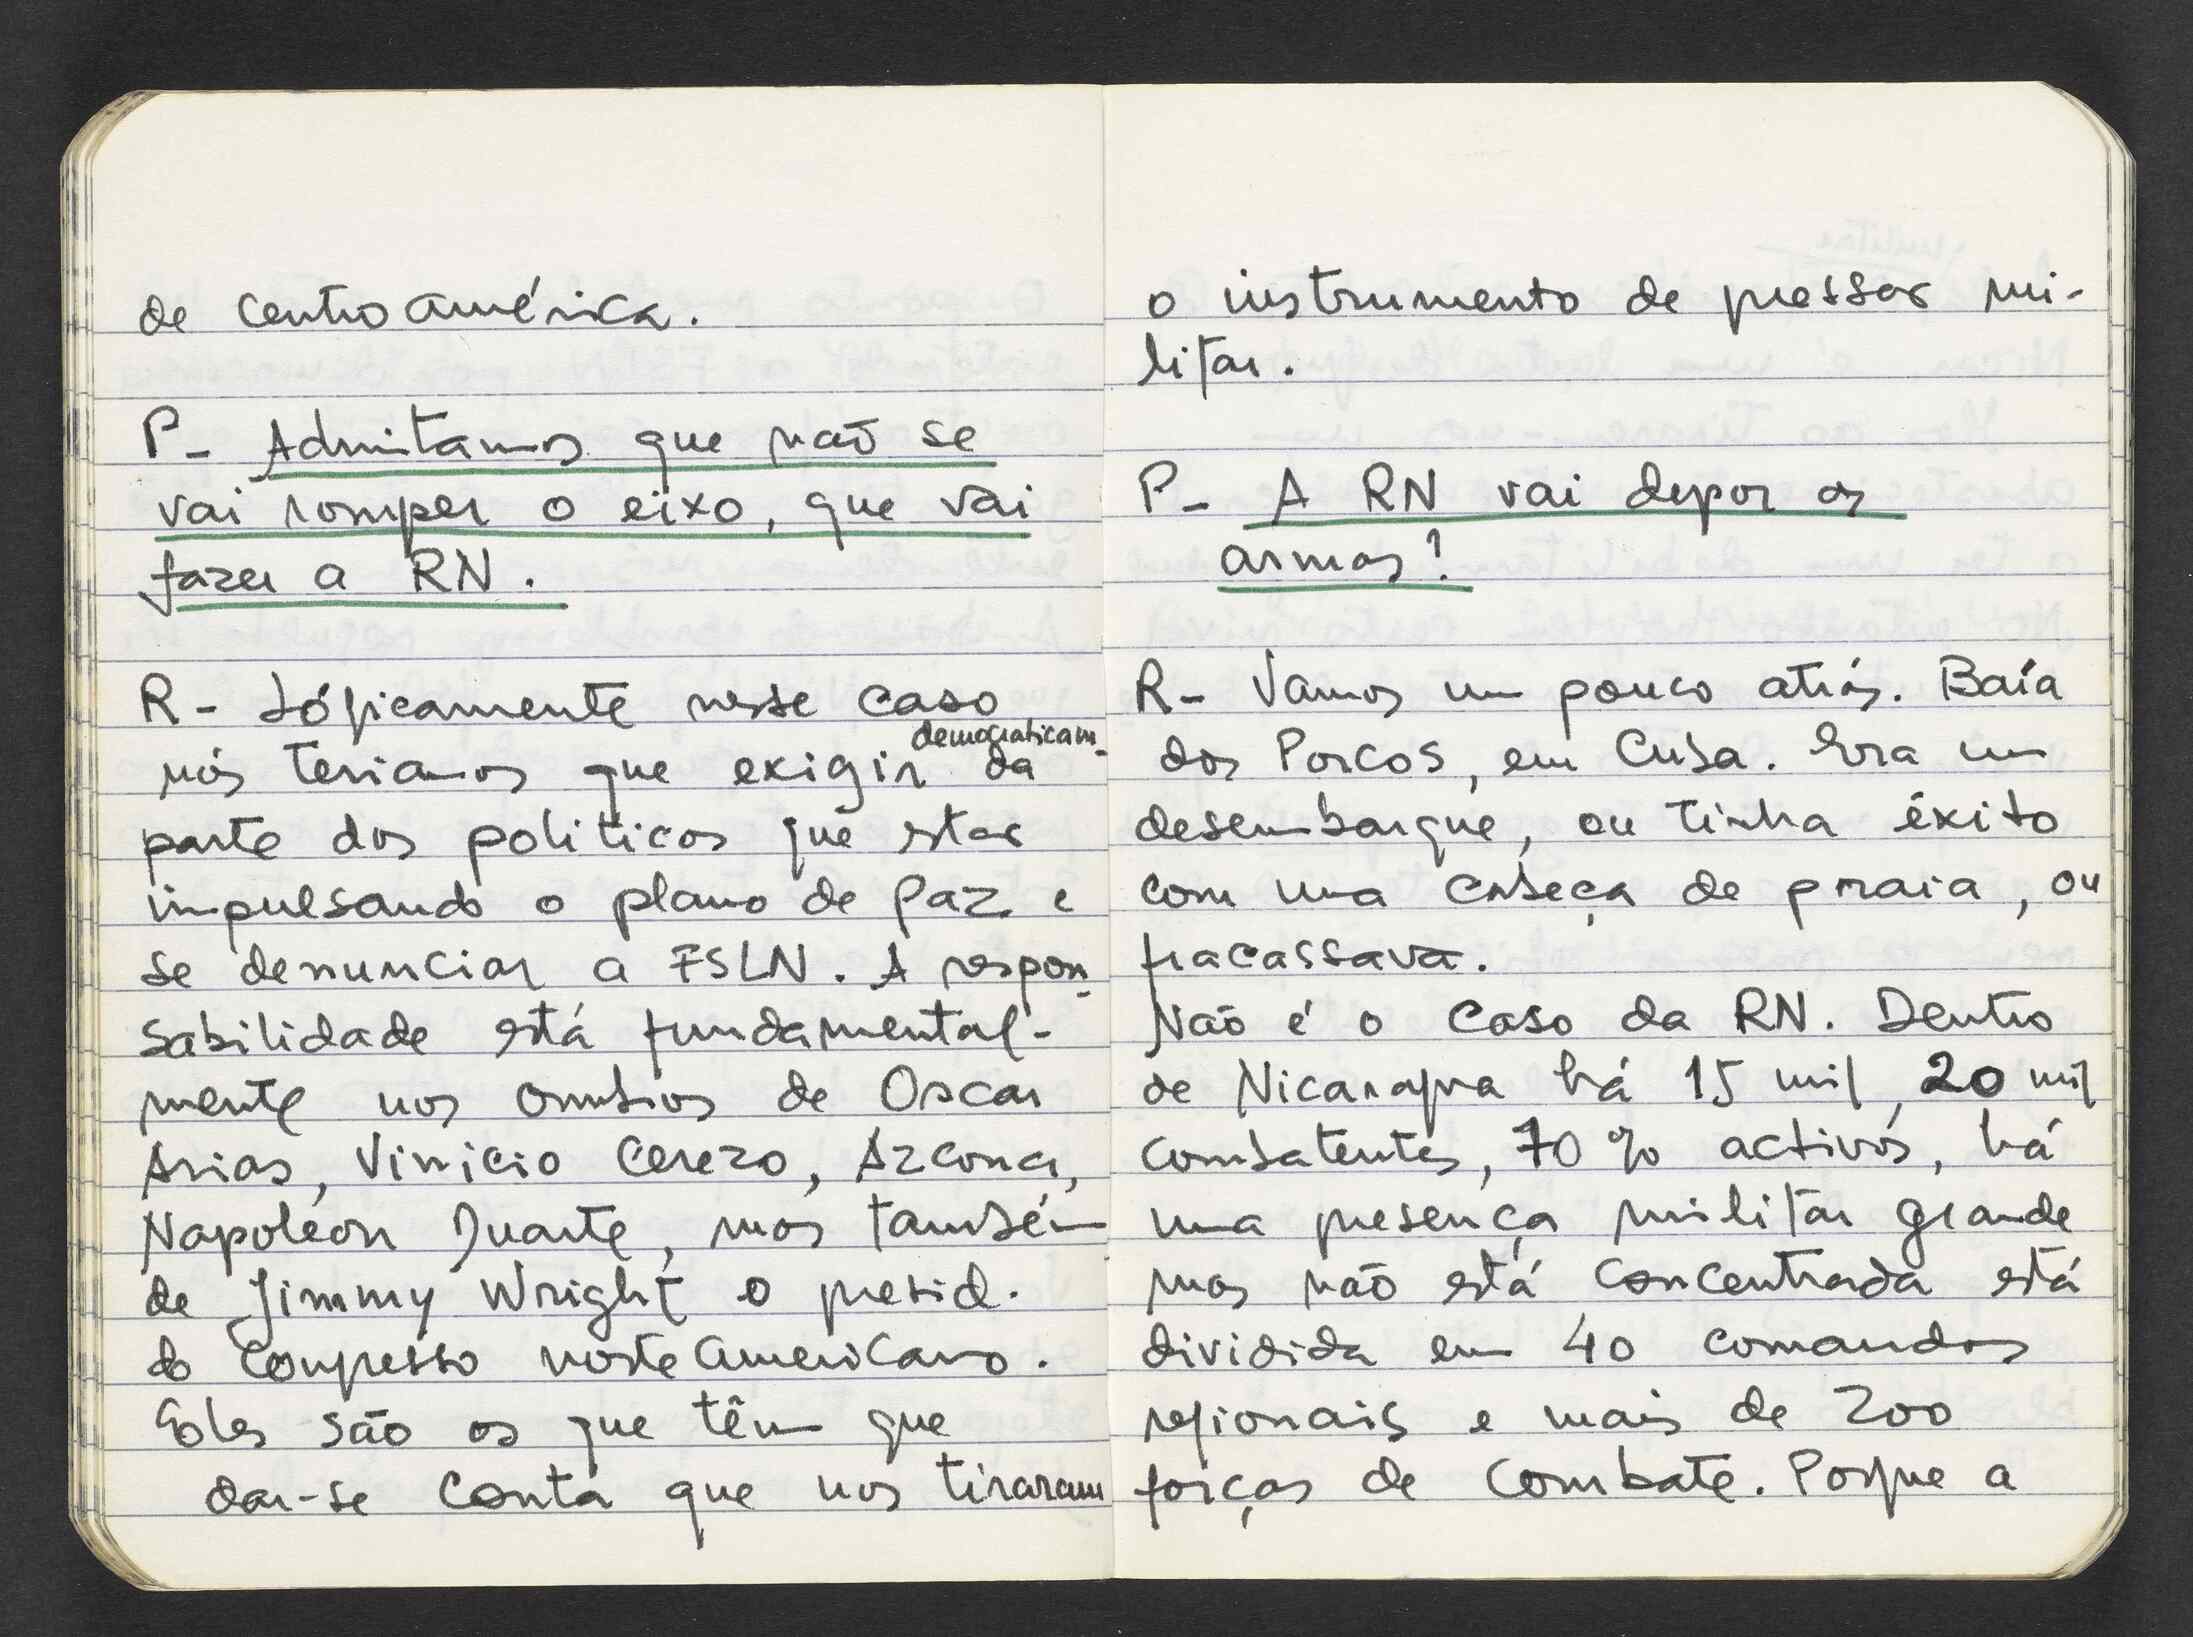 de centroamérica.
P- Admitamos que não se
vai romper o eixo, que vai
fazer a RN.
R- Lógicamente nesse caso
democraticam-
nós teriamos que exigir da
parte dos politicos que estar
impulsando o plano de Paz e
se denunciar a FSLN. A respon-
sabilidade está fundamental-
mente nos ombros de Oscar
Arias, Vinicio Cerezo, Azcona,
Napoléon Duarte, mas também
de Jimmy Wright o presid.
do Congresso norteamericano.
Eles são os que têm que
dar-se conta que nos tiraram
o instrumento de pressar mi-
litar.
P- A RN vai depor as
armas?
R- Vamos um pouco atrás. Baía
dos Porcos, em Cuba. Era um
desembarque, ou tinha êxito
com uma cabeça de praia, ou
fracassava.
Não é o caso da RN. Dentro
de Nicaragua há 15 mil, 20 mil
combatentes, 70% activos, há
uma presença militar grande
mas não está concentrada está
dividida em 40 comandos
regionais e mais de 200
forças de combate. Porque a